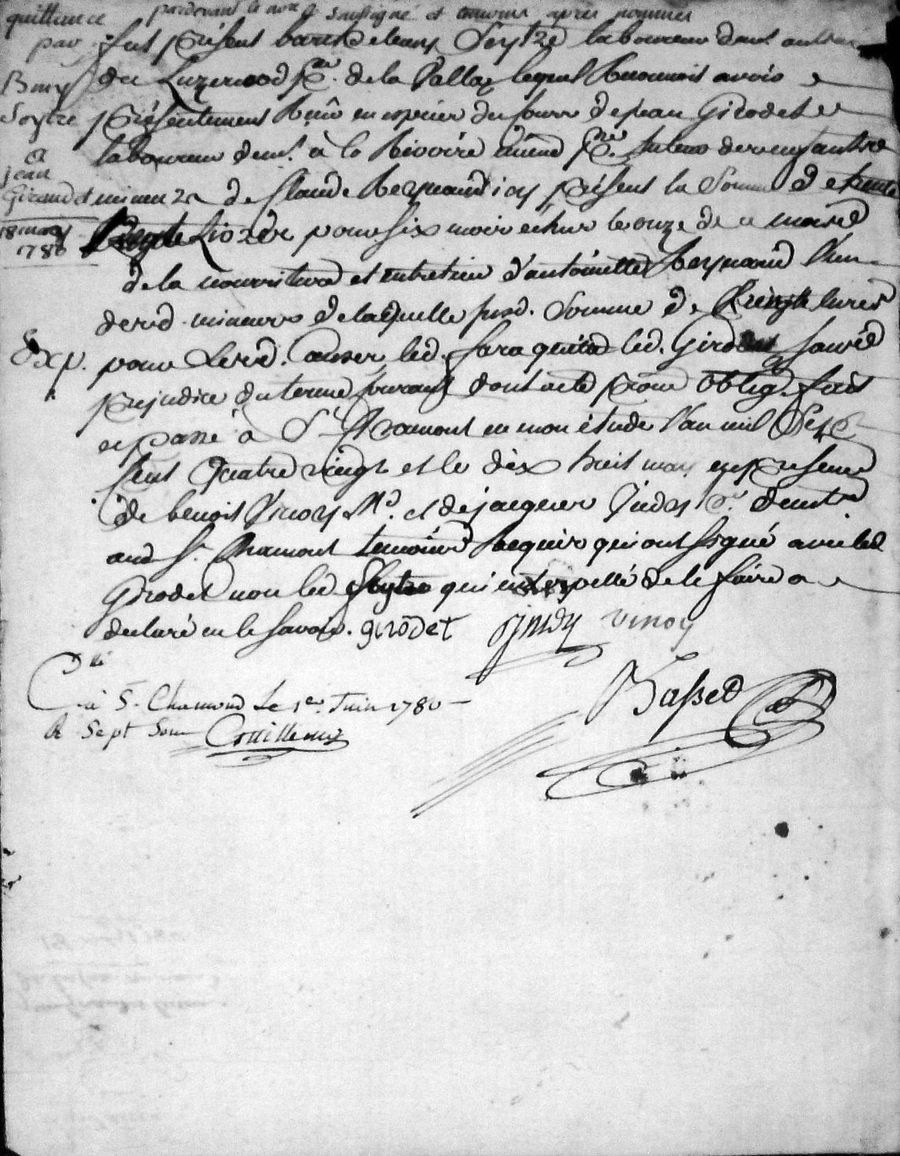 quittance
par
Bmy
Seytre
a
jean
Giraudet
18 may
1780
Exp.
pardevant le not. soussigné et temoins après nommés
fut présent barthelemy Seytre laboureur dem. au lieu
du Luzernod psse de la Valla lequel reconnoit avoir
présentement reçu en espèces du jour de jean Girodet
laboureur dem. à la Rivoire même psse tuteur des enfants
mineurs de Claude Reymond icy présent la somme de trente
livres pour six mois échus le onze de ce mois
de la nourriture et entretien d'antoinette Reymond l'un
desd. mineurs de laquelle susd. somme de livres
pour lesd. causes led. Sera quitte led. Girodet sauf
préjudice du terme courant dont acte pour oblig. fait
et passé à St Chamont en mon étude l'an mil Sept
Cent quatre vingt et le dix huit may en présence
de benoit Vinoy Md. et de jacques
aud St Chamont temoins requis qui ont signé avec led
Girodet non led Seytre qui interpellé de le faire a
déclaré ne le savoir. girodet vinoy
Basset
Clé
à St Chamond Le 1er Juin 1780
R Sept Sous